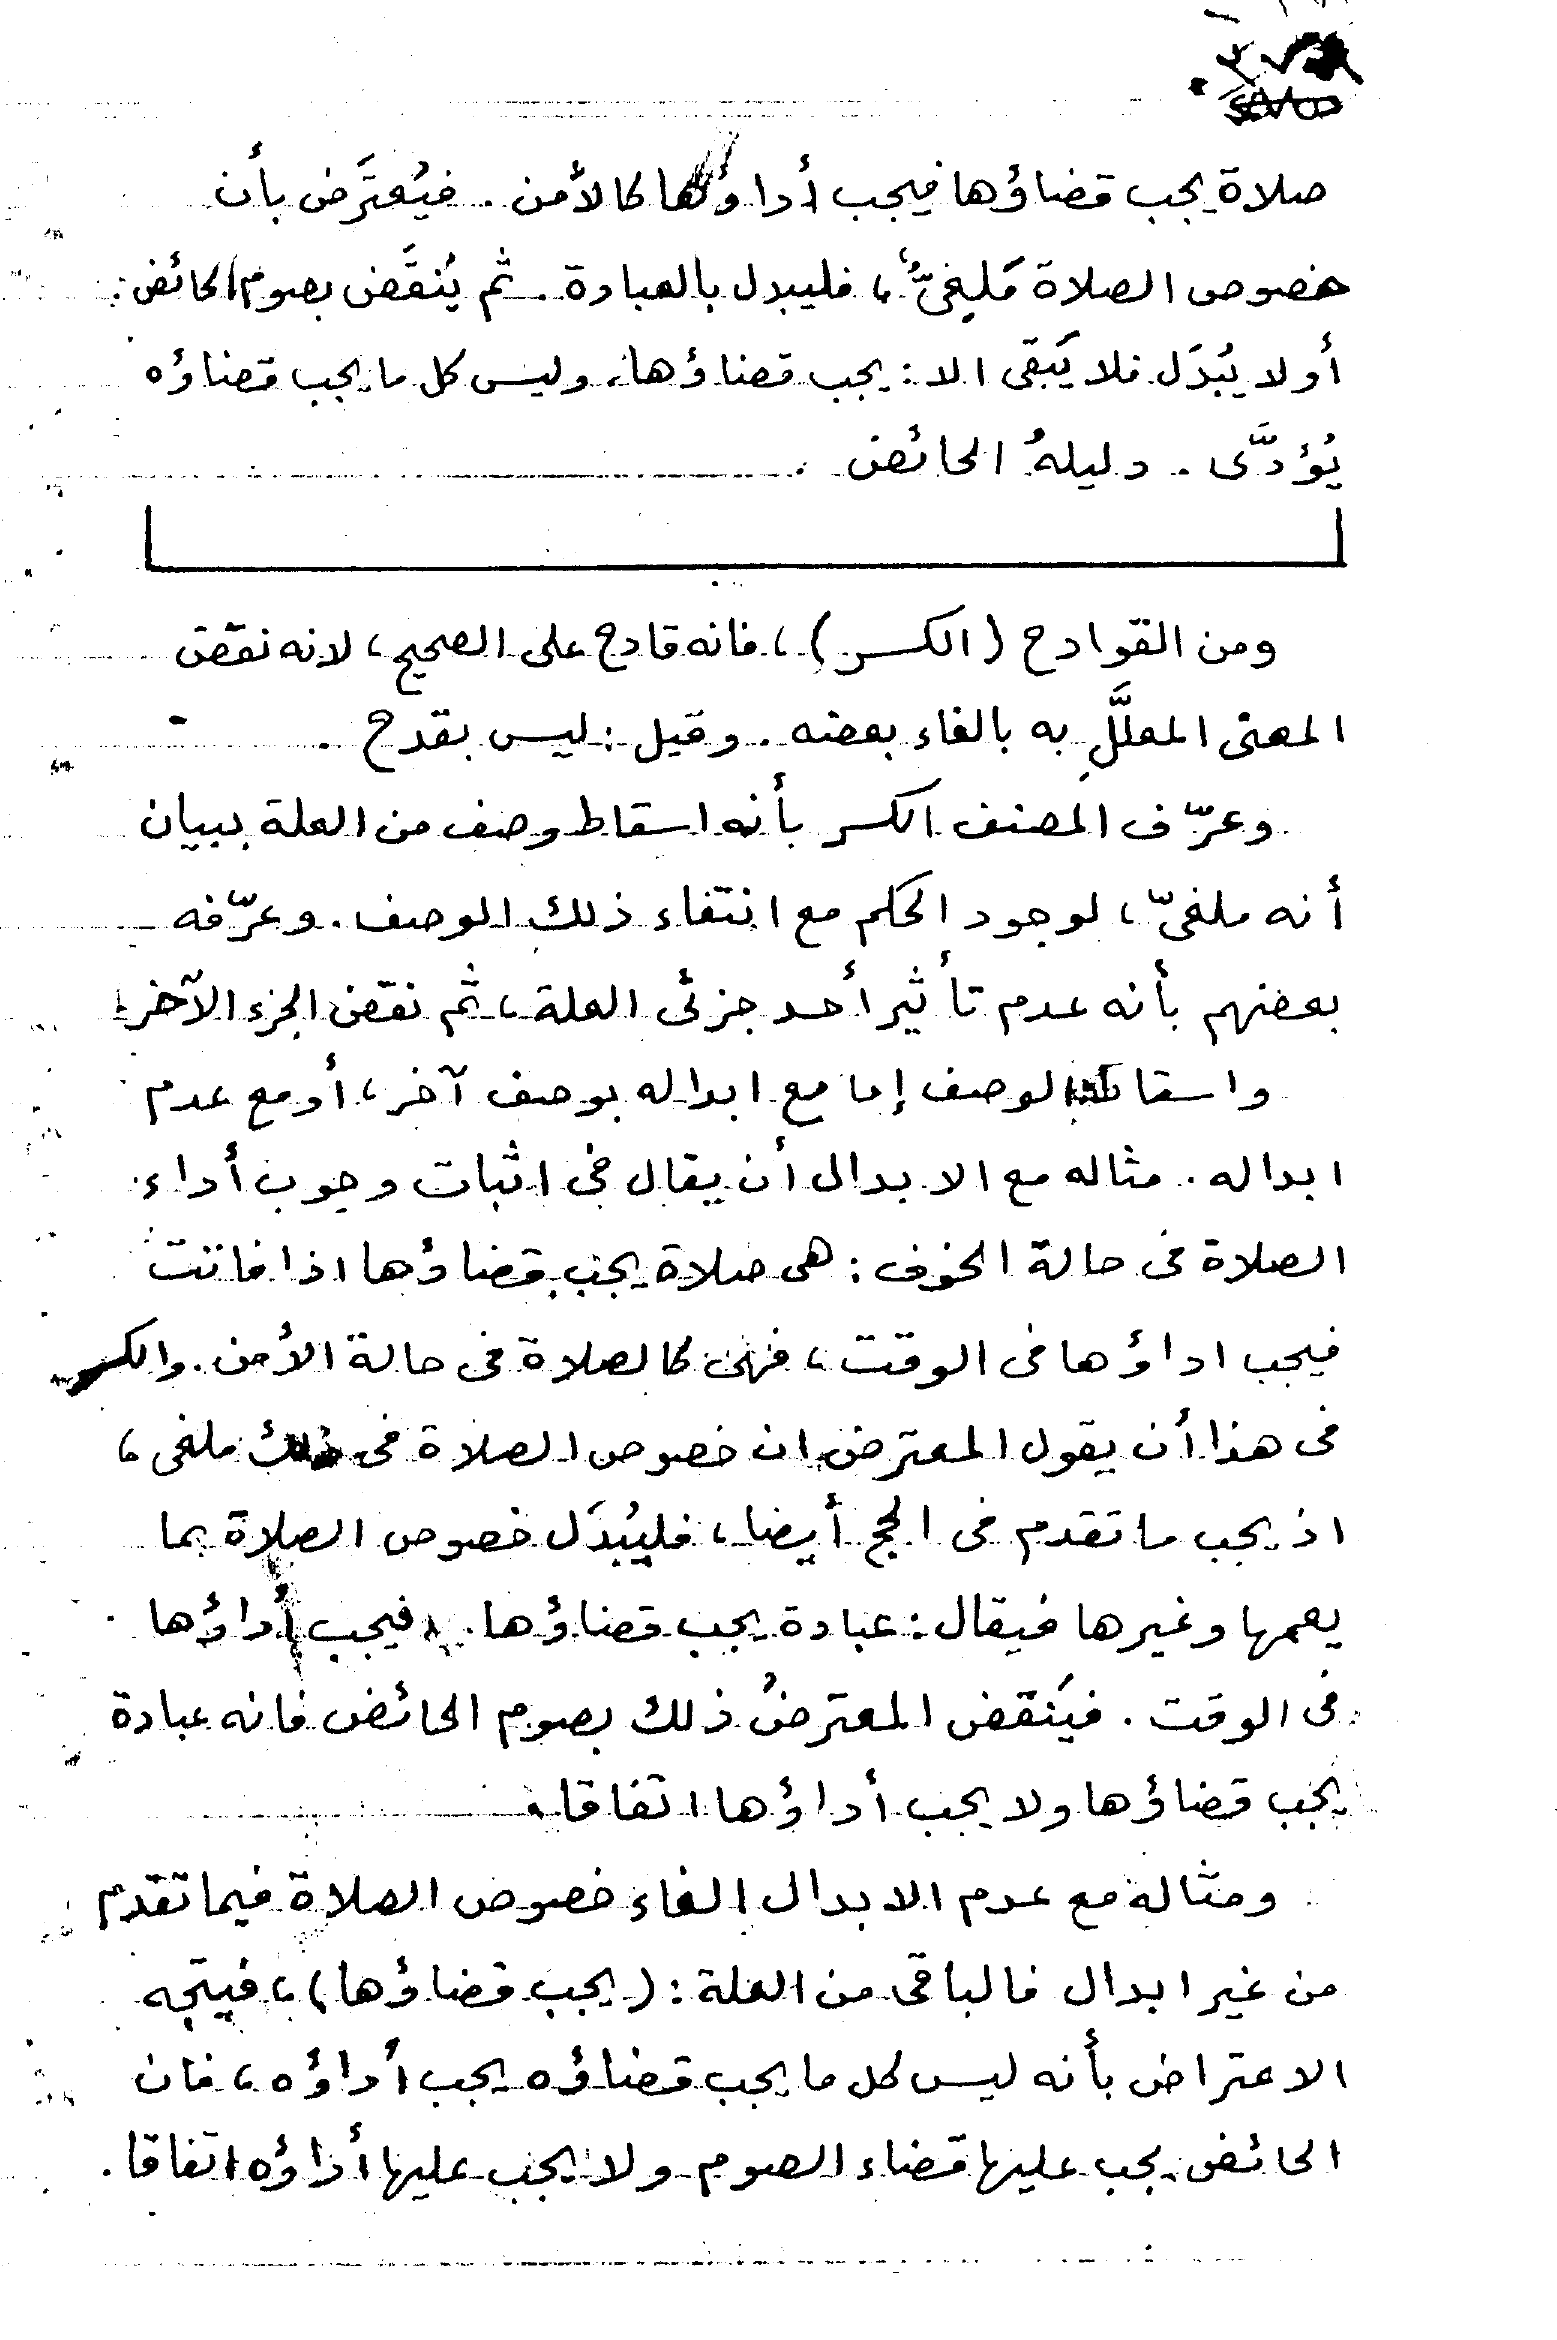 صلاة يجب قضاؤها فيجب أداؤها كالأمن . فيُعترَض بأن
خصوص الصلاة مُلغىً ، فليبدل بالعبادة . ثم يُنقَض بصوم الحائض .
أو لا يُبدَل فلا يَبقى الا : يجب قضاؤها ، وليس كل ما يجب قضاؤه
يُؤدَّى . دليلهُ الحائض .
ومن القوادح ( الكسر ) ، فانه قادح على الصحيح ، لانه نقض
المعنى المعلَّلِ به بالغاء بعضه . وقيل : ليس بقدح .
وعرّف المصنف الكسر بأنه اسقاط وصف من العلة ببيان
أنه ملغىّ ، لوجود الحكم مع انتفاء ذلك الوصف . وعرّفه
بعضهم بأنه عدم تأثير أحد جزئى العلة ، ثم نقض الجزء الآخر .
واسقاط الوصف إما مع ابداله بوصف آخر ، أو مع عدم
ابداله . مثاله مع الابدال أن يقال فى اثبات وجوب أداء
الصلاة فى حالة الخوف : هى صلاة يجب قضاؤها اذا فاتت
فيجب اداؤها فى الوقت ، فهى كالصلاة فى حالة الأمن . والكسر
فى هذا أن يقول المعترض ان خصوص الصلاة فى ذلك ملغى ،
اذ يجب ما تقدم فى الحج أيضا ، فليُبدَل خصوص الصلاة بما
يعمها وغيرها فيقال : عبادة يجب قضاؤها . فيجب أداؤها
فى الوقت . فيَنقض المعترضُ ذلك بصوم الحائض فانه عبادة
يجب قضاؤها ولا يجب أداؤها اتفاقا .
ومثاله مع عدم الابدال الغاء خصوص الصلاة فيما تقدم
من غير ابدال فالباقى من العلة : ( يجب قضاؤها ) ، فيتجه
الاعتراض بأنه ليس كل ما يجب قضاؤه يجب أداؤه ، فان
الحائض يجب عليها قضاء الصوم ولا يجب عليها أداؤه اتفاقا .